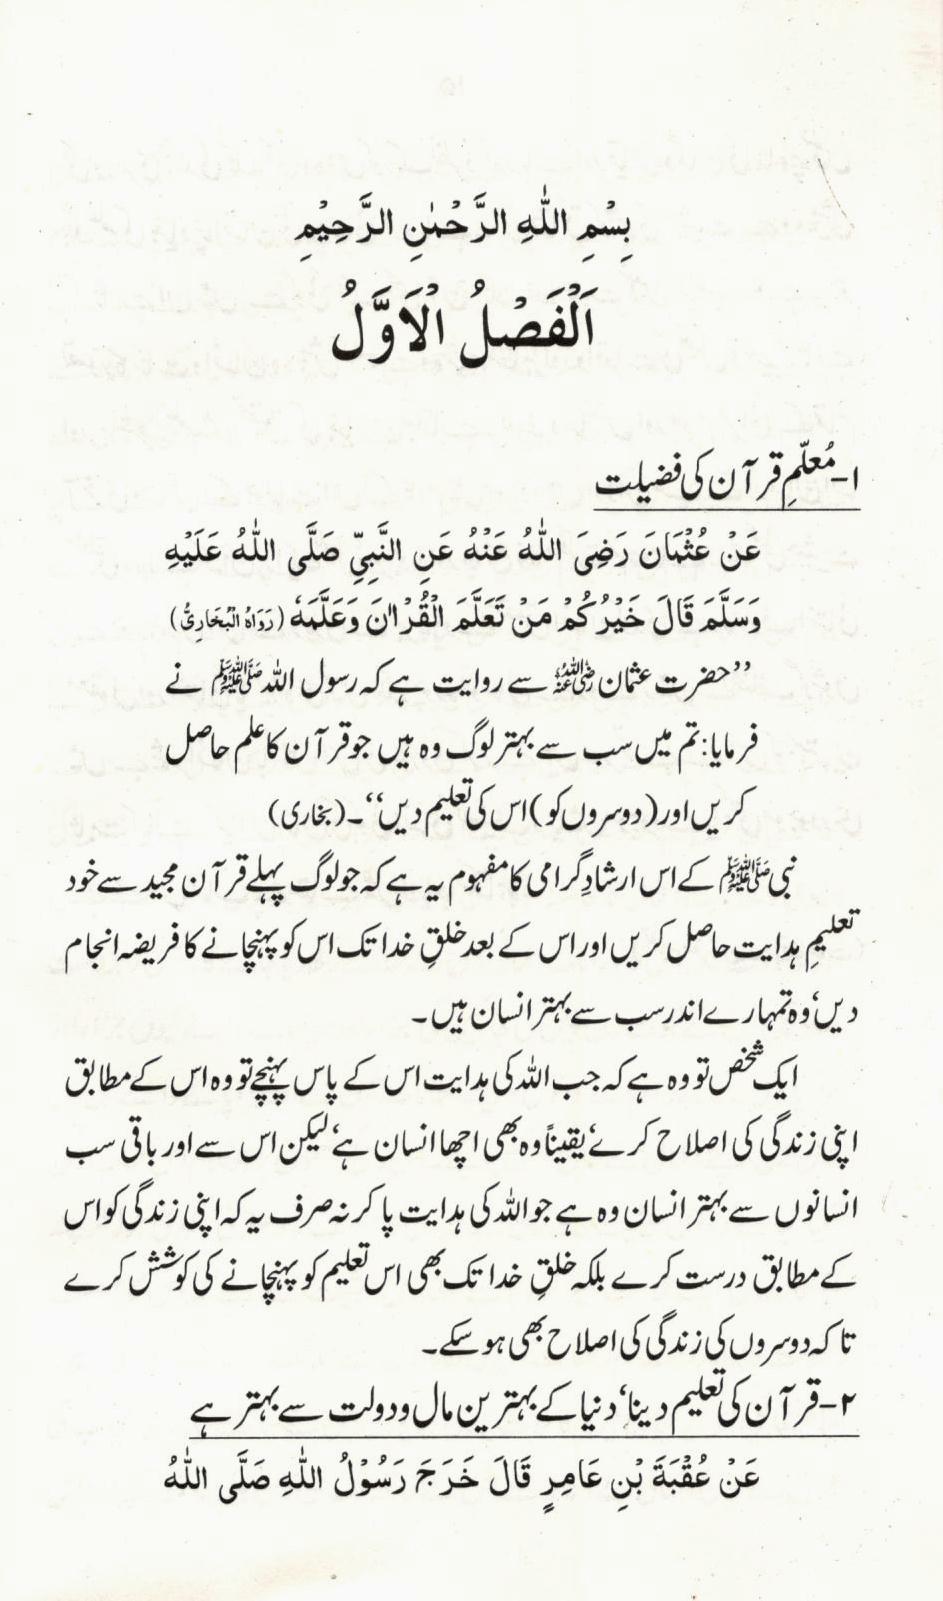 بِسْمِ اللّٰهِ الرَّحْمٰنِ الرَّحِيْمِ
اَلْفَصْلُ الْاَوَّلُ
۱- مُعلّمِ قرآن کی فضیلت
عَنْ عُثْمَانَ رَضِيَ اللّٰهُ عَنْهُ عَنِ النَّبِيِّ صَلَّى اللّٰهُ عَلَيْهِ
وَسَلَّمَ قَالَ خَيْرُكُمْ مَنْ تَعَلَّمَ الْقُرْاٰنَ وَعَلَّمَهٗ (رَوَاهُ الْبُخَارِيُّ)
’’حضرت عثمان رضی اللہ عنہ سے روایت ہے کہ رسول اللہ ﷺ نے
فرمایا: تم میں سب سے بہتر لوگ وہ ہیں جو قرآن کا علم حاصل
کریں اور (دوسروں کو) اس کی تعلیم دیں‘‘۔ (بخاری)
نبی ﷺ کے اس ارشادِ گرامی کا مفہوم یہ ہے کہ جو لوگ پہلے قرآن مجید سے خود
تعلیمِ ہدایت حاصل کریں اور اس کے بعد خلقِ خدا تک اس کو پہنچانے کا فریضہ انجام
دیں‘ وہ تمہارے اندر سب سے بہتر انسان ہیں۔
ایک شخص تو وہ ہے کہ جب اللہ کی ہدایت اس کے پاس پہنچے تو وہ اس کے مطابق
اپنی زندگی کی اصلاح کرے‘ یقیناً وہ بھی اچھا انسان ہے‘ لیکن اس سے اور باقی سب
انسانوں سے بہتر انسان وہ ہے جو اللہ کی ہدایت پا کر نہ صرف یہ کہ اپنی زندگی کو اس
کے مطابق درست کرے بلکہ خلقِ خدا تک بھی اس تعلیم کو پہنچانے کی کوشش کرے
تاکہ دوسروں کی زندگی کی اصلاح بھی ہو سکے۔
۲- قرآن کی تعلیم دینا‘ دنیا کے بہترین مال و دولت سے بہتر ہے
عَنْ عُقْبَةَ بْنِ عَامِرٍ قَالَ خَرَجَ رَسُوْلُ اللّٰهِ صَلَّى اللّٰهُ